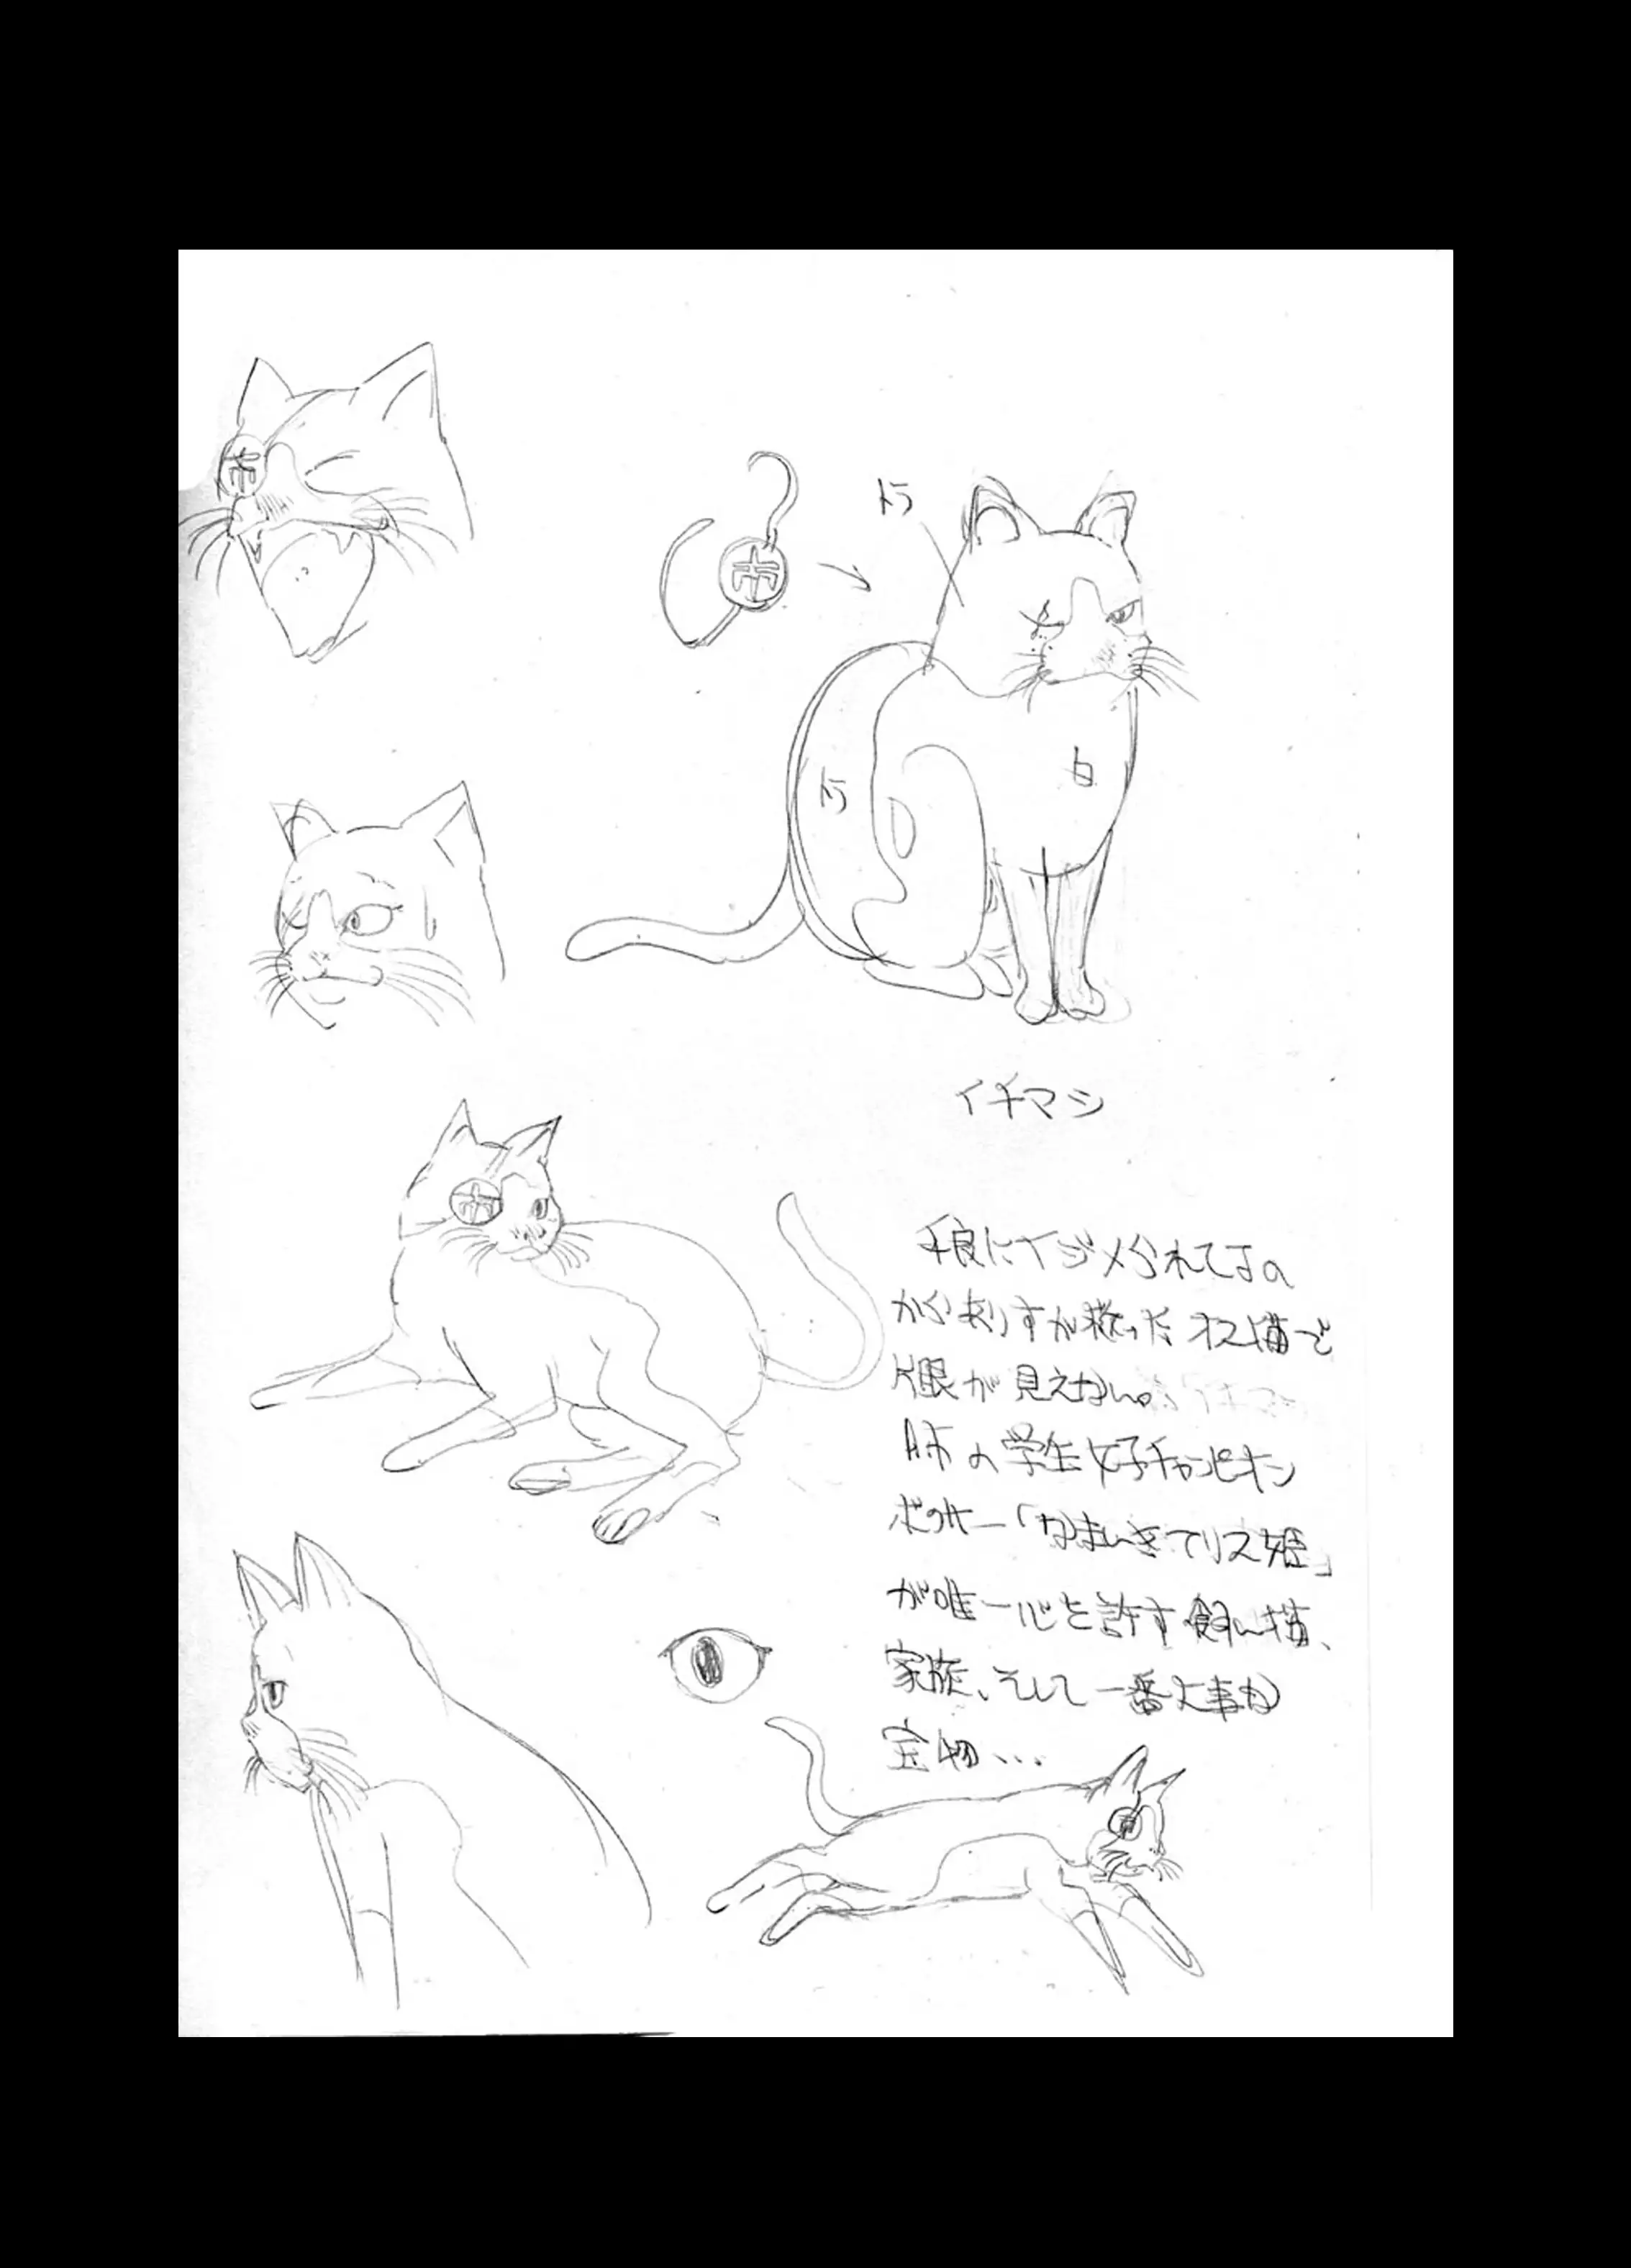 市
市
トラ
トラ
白
イチマシ
不良にイジメられてるの
からありすが救ったオス猫で
片眼が見えない。
A市の学生女子チャンピオン
ボクサー「なまいきアリス姫」
が唯一心を許す飼い猫、
家族、そして一番大事な
宝物...
市
市